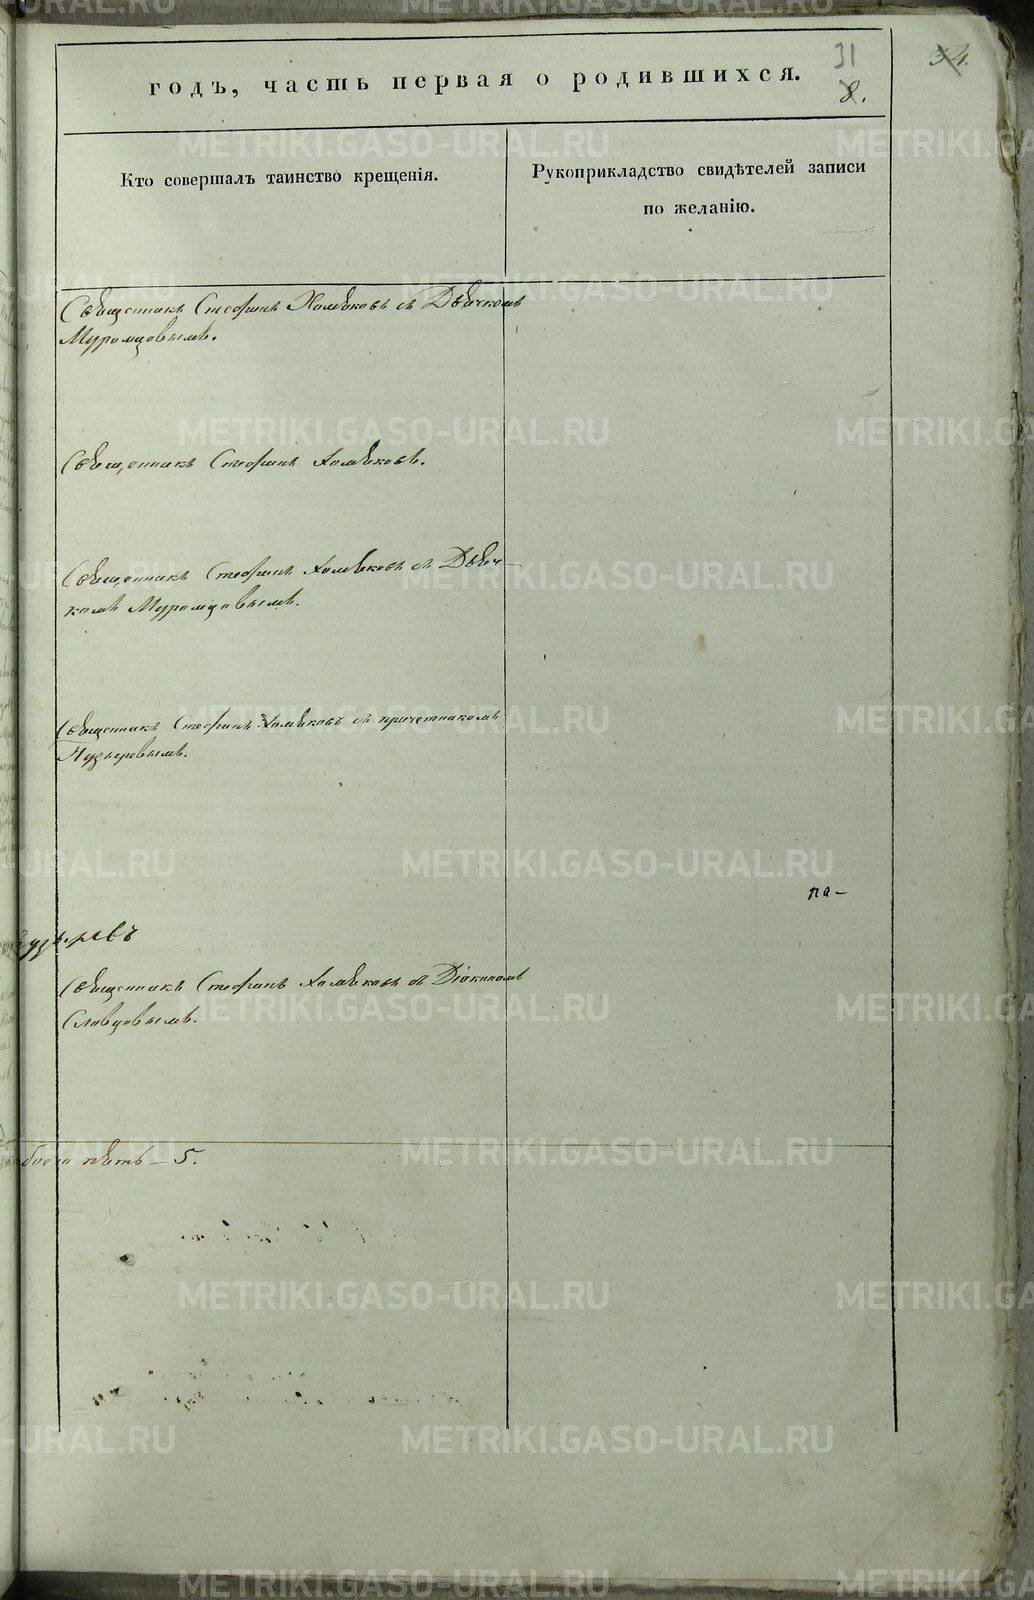 31
34.
годъ, часть первая о родившихся.
8.
Кто совершалъ таинство крещенія.
Рукоприкладство свидѣтелей записи
по желанію.
Священникъ Стефанъ Хомяковъ съ Дьячкомъ
Муромцовымъ.
Священникъ Стефанъ Хомяковъ.
Священникъ Стефанъ Хомяковъ съ Дьяч-
комъ Муромцовымъ.
Священникъ Стефанъ Хомяковъ съ причетникомъ
Пузыревымъ.
па-
Священникъ Стефанъ Хомяковъ съ Діакономъ
Словцовымъ.
пять – 5.
METRIKI.GASO-URAL.RU